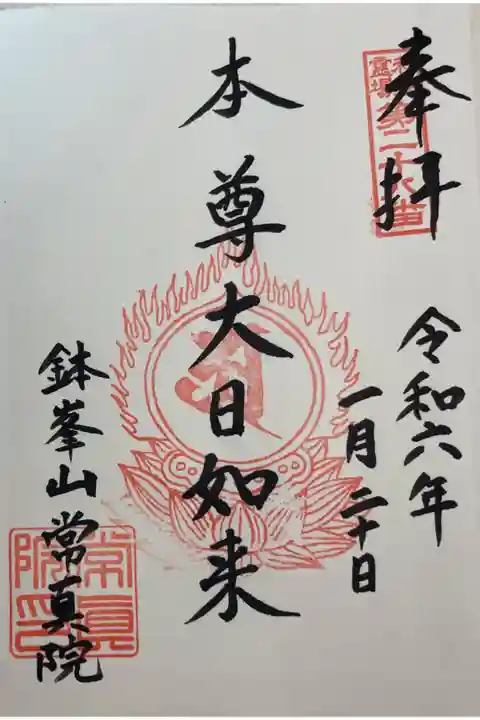 奉拝
令和六年
一月二十日
本尊大日如来
鉢峯山常真院
常真院印